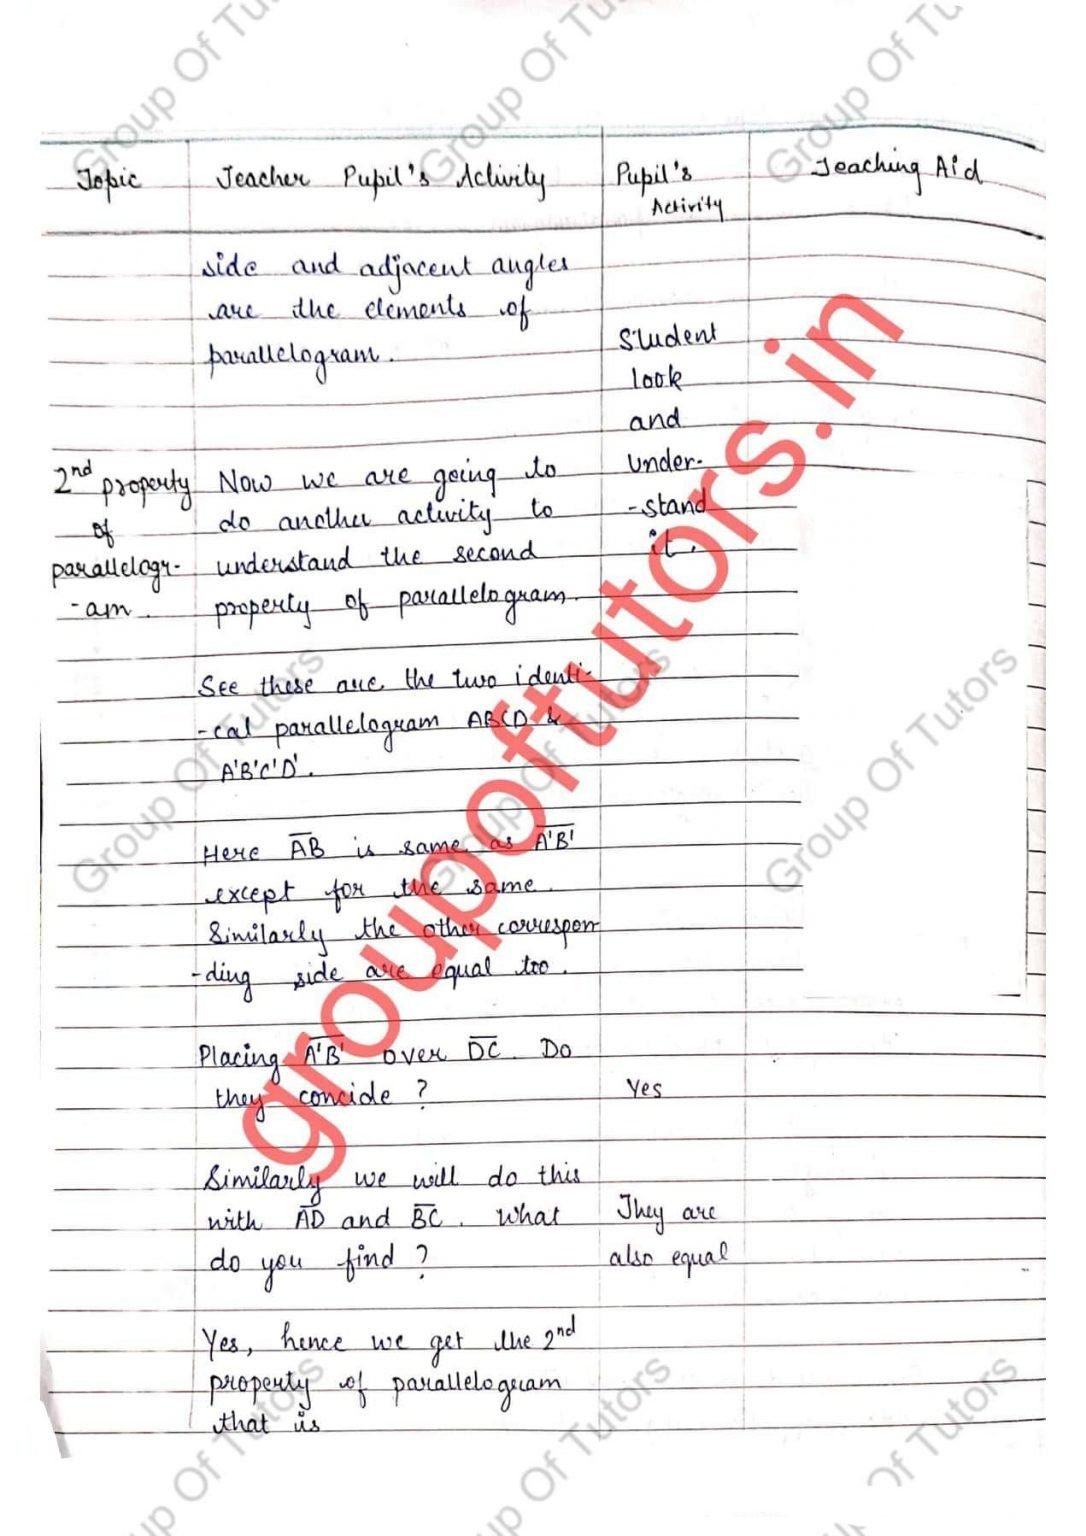 Topic
Teacher Pupil's Activity
Pupil's
Activity
Teaching Aid
side and adjacent angles
are the elements of
parallelogram.
Student
look
and
under-
-stand
it.
2nd property
of
parallelogr-
-am.
Now we are going to
do another activity to
understand the second
property of parallelogram.
See these are the two identi-
-cal parallelogram ABCD &
A'B'C'D'.
Here A̅B̅ is same as A̅'̅B̅'̅
except for the same.
Similarly the other correspon
-ding side are equal too.
Placing A̅'̅B̅'̅ over D̅C̅. Do
they concide ?
Yes
Similarly we will do this
with A̅D̅ and B̅C̅. What
do you find ?
They are
also equal
Yes, hence we get the 2nd
property of parallelogram
that is
groupoftutors.in
Group Of Tutors
Group Of Tutors
Group Of Tutors
Group Of Tutors
Group Of Tutors
Group Of Tutors
Group Of Tutors
Group Of Tutors
Of Tutors